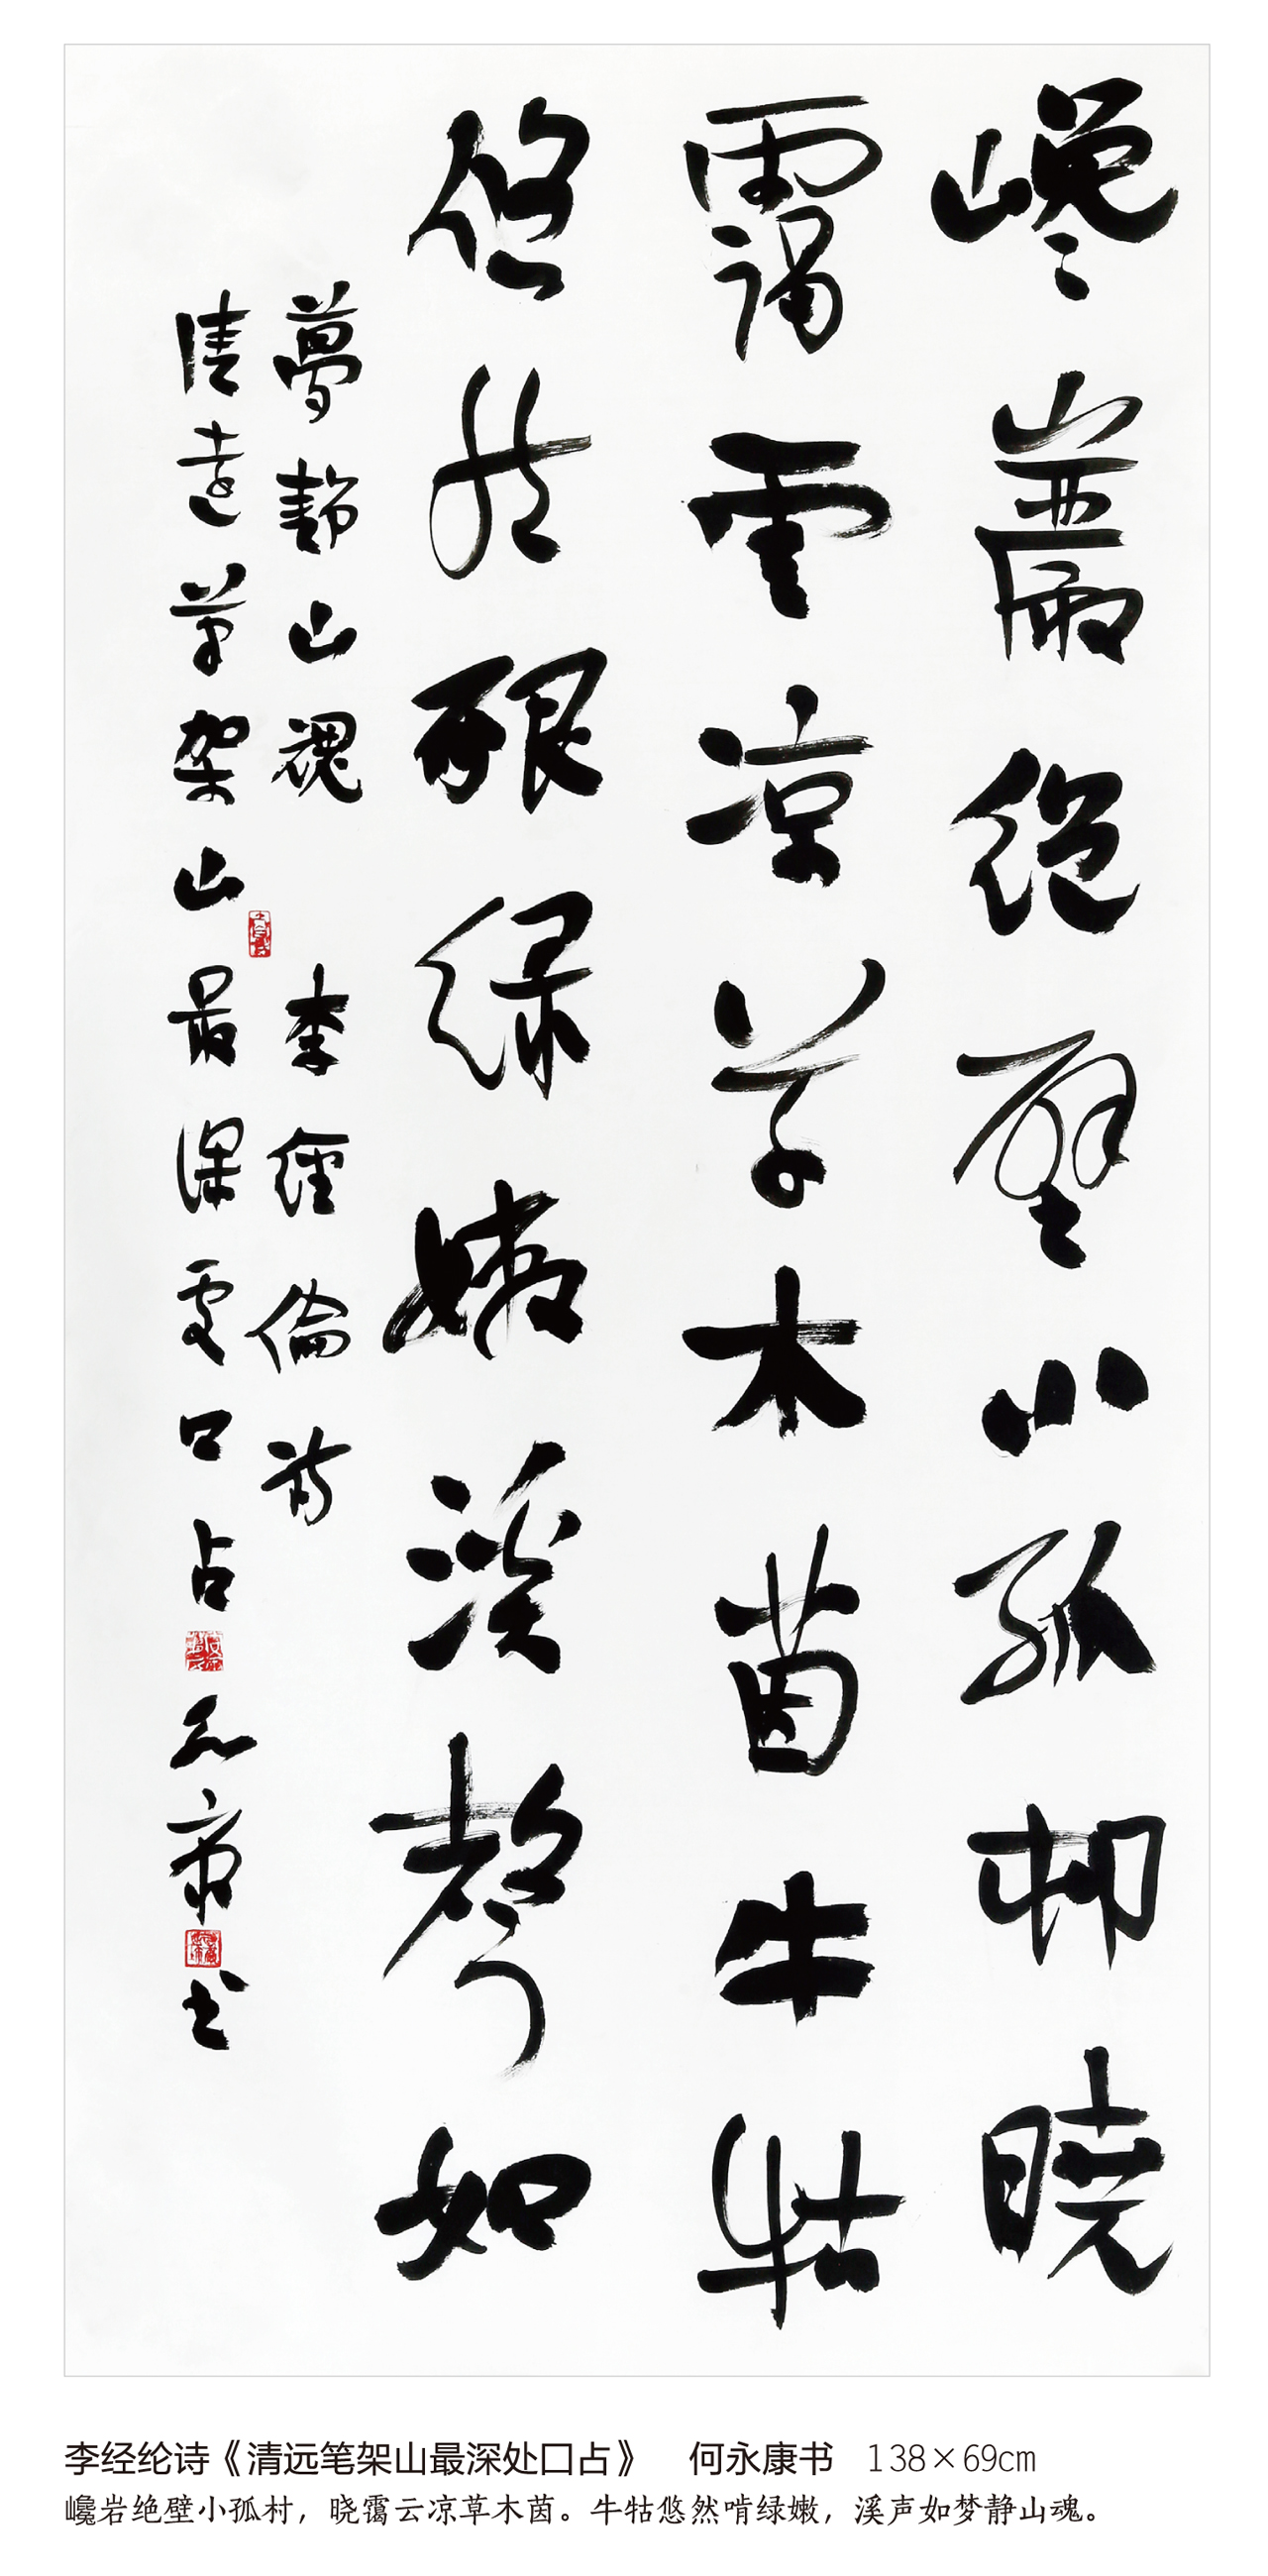 巉巖絕壁小孤邨曉
靄雲凉草木茵牛牯
悠然豤绿嫩溪聲如
夢静山魂 李經倫詩
清遠笔架山最深處口占 永康书
李经纶诗《清远笔架山最深处口占》 何永康书 138×69cm
巉岩绝壁小孤村，晓霭云凉草木茵。牛牯悠然啃绿嫩，溪声如梦静山魂。